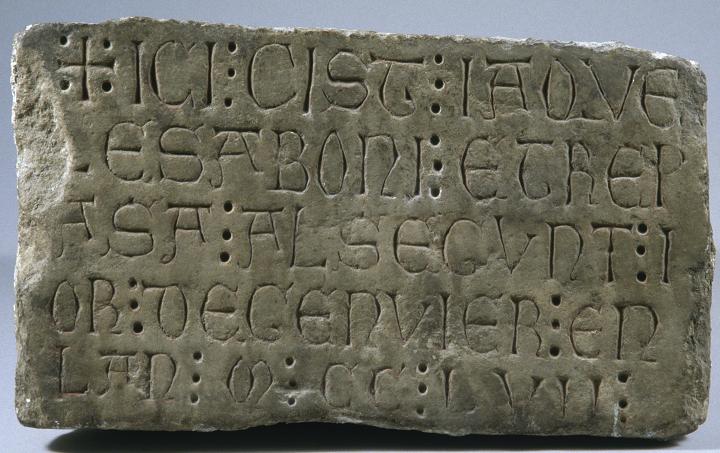 + ICI : CIST : IAQVE
ESABONI : ETREP
ASA : ALSECVNT : I
OR : DEGENVIER : EN
LAN : M : CC : LVII :